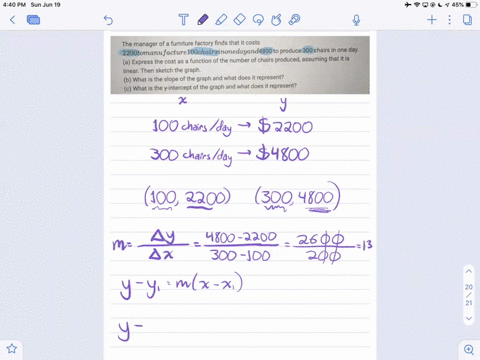 4:40 PM Sun Jun 19
45%
The manager of a furniture factory finds that it costs
2200tomanufacture100chairsinonedayand4800 to produce 300 chairs in one day.
(a) Express the cost as a function of the number of chairs produced, assuming that it is
linear. Then sketch the graph.
(b) What is the slope of the graph and what does it represent?
(c) What is the y-intercept of the graph and what does it represent?
x y
100 chairs/day → $2200
300 chairs/day → $4800
(100, 2200) (300, 4800)
m = Δy/Δx = 4800-2200/300-100 = 2600/200 = 13
y - y₁ = m(x - x₁)
y -
20
/
21